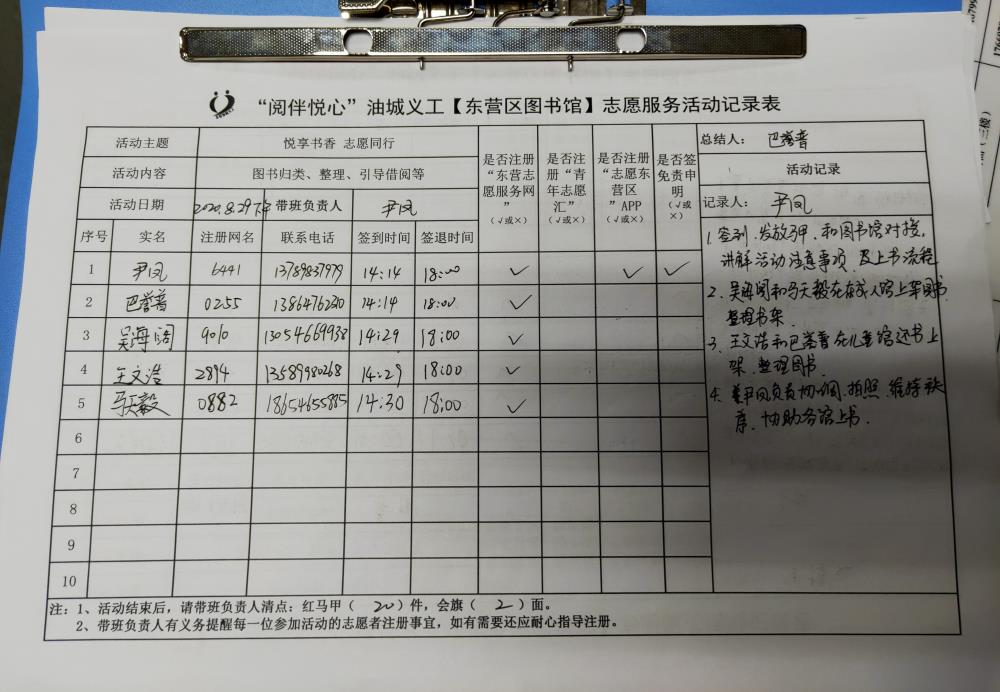 “阅伴悦心”油城义工【东营区图书馆】志愿服务活动记录表
活动主题 悦享书香 志愿同行
活动内容 图书归类、整理、引导借阅等
活动日期 2020.8.29下午 带班负责人 尹凤
是否注册“东营志愿服务网”（√或×）
是否注册“青年志愿汇”（√或×）
是否注册“志愿东营区”APP（√或×）
是否签免责申明（√或×）
总结人： 巴誉普
活动记录
记录人： 尹凤
序号 实名 注册网名 联系电话 签到时间 签退时间
1 尹凤 6441 13789837979 14:14 18:00 √ √ √
2 巴誉普 0255 14:14 18:00 √
3 吴海阔 9010 13054669938 14:29 18:00 √
4 王文浩 2894 13589980268 14:29 18:00 √
5 马天毅 0882 18654655885 14:30 18:00 √
6
7
8
9
10
1. 签到、发放马甲、和图书馆对接，
讲解活动注意事项 及上书流程
2. 吴海阔和马天毅在成人馆上架图书
整理书架.
3. 王文浩和巴誉普在儿童馆还书上
架、整理图书.
4. 尹凤负责协调、拍照、维持秩
序、协助各馆上书.
注：1、活动结束后，请带班负责人清点：红马甲（ 20 ）件，会旗（ 2 ）面。
2、带班负责人有义务提醒每一位参加活动的志愿者注册事宜，如有需要还应耐心指导注册。